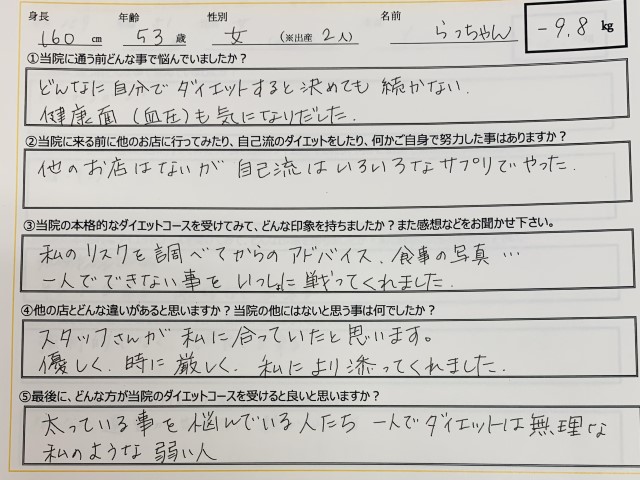 身長 160 cm 年齢 53 歳 性別 女 (※出産 2 人) 名前 らっちゃん -9.8 kg
①当院に通う前どんな事で悩んでいましたか？
どんなに自分でダイエットすると決めても続かない.
健康面(血圧)も気になりだした.
②当院に来る前に他のお店に行ってみたり、自己流のダイエットをしたり、何かご自身で努力した事はありますか？
他のお店はないが自己流はいろいろなサプリでやった.
③当院の本格的なダイエットコースを受けてみて、どんな印象を持ちましたか？また感想などをお聞かせ下さい。
私のリスクを調べてからのアドバイス、食事の写真…
一人でできない事をいっしょに戦ってくれました.
④他の店とどんな違いがあると思いますか？当院の他にはないと思う事は何でしたか？
スタッフさんが私に合っていたと思います。
優しく、時に厳しく、私により添ってくれました.
⑤最後に、どんな方が当院のダイエットコースを受けると良いと思いますか？
太っている事を悩んでいる人たち 一人でダイエットは無理な
私のような弱い人